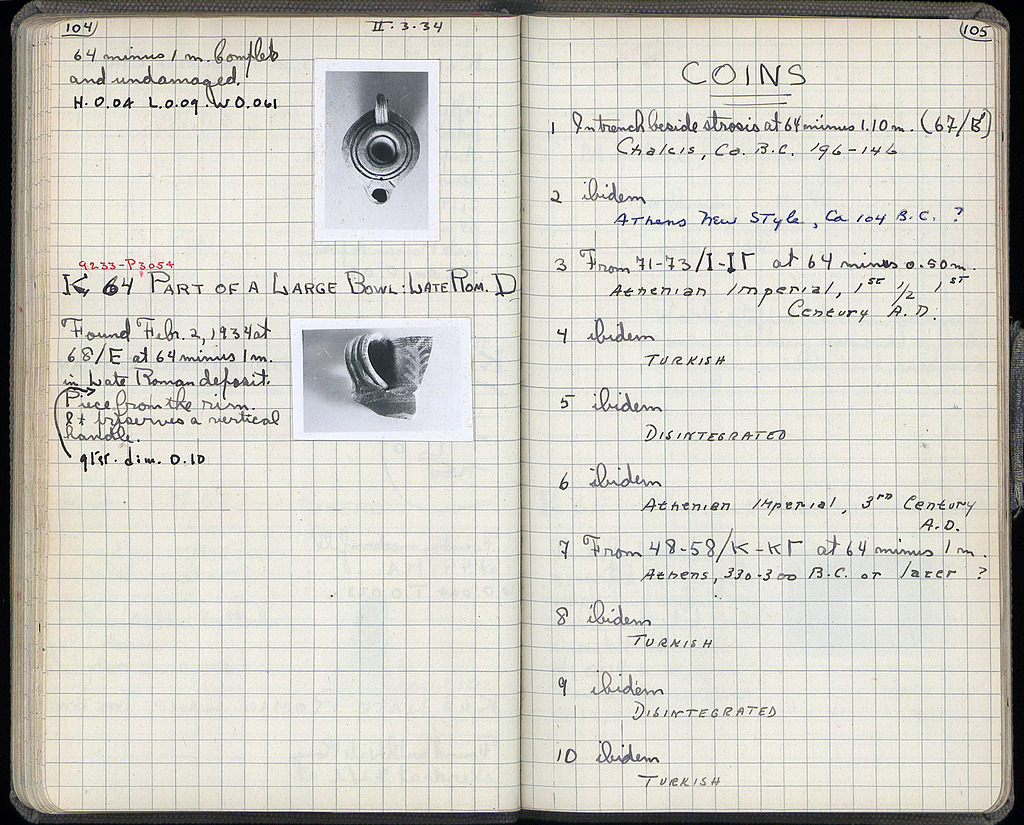 104
II · 3 · 34
64 minus 1 m. Complete
and undamaged.
H. 0.04 L. 0.09 . W 0.061
9233-P3054
K 64 PART OF A LARGE BOWL: LATE ROM. D
Found Febr. 2, 1934 at
68/E at 64 minus 1 m.
in Late Roman deposit.
Piece from the rim.
It preserves a vertical
handle.
grst. dim. 0.10
105
COINS
1 In trench beside strosis at 64 minus 1.10 m. (67/B)
Chalcis, Ca. B.C. 196-146
2 ibidem
Athens New Style, Ca 104 B.C. ?
3 From 71-73/I-IΓ at 64 minus 0.50 m.
Athenian Imperial, 1st 1/2 1st
Century A.D.
4 ibidem
TURKISH
5 ibidem
DISINTEGRATED
6 ibidem
Athenian Imperial, 3rd Century
A.D.
7 From 48-58/K-KΓ at 64 minus 1 m.
Athens, 330-300 B.C. or later ?
8 ibidem
TURKISH
9 ibidem
DISINTEGRATED
10 ibidem
TURKISH